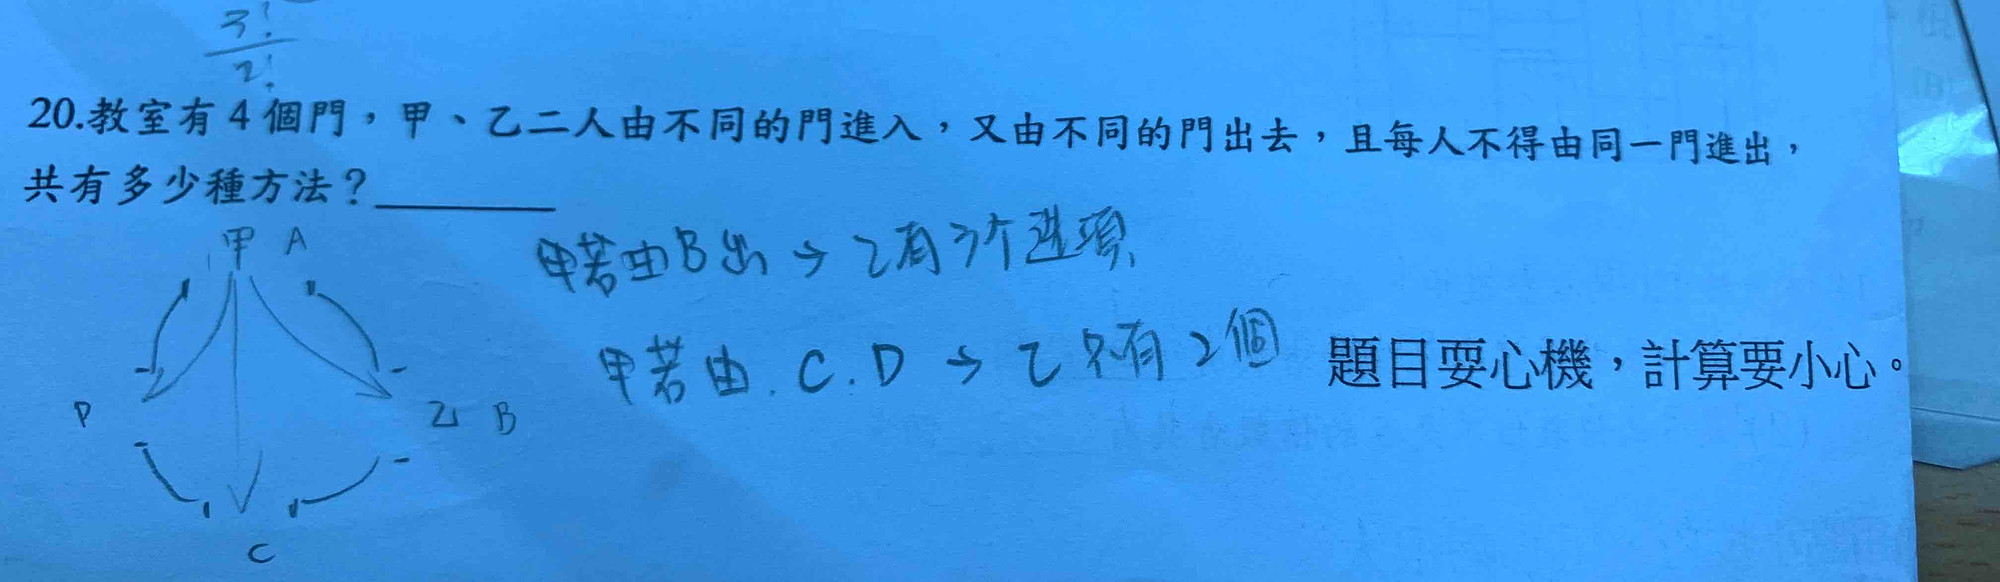 3!
2!
20.教室有4個門，甲、乙二人由不同的門進入，又由不同的門出去，且每人不得由同一門進出，
共有多少種方法？
甲 A
甲若由B出→乙有3个選項
甲若由.C.D→乙只有2個
題目耍心機，計算要小心。
D
乙 B
C